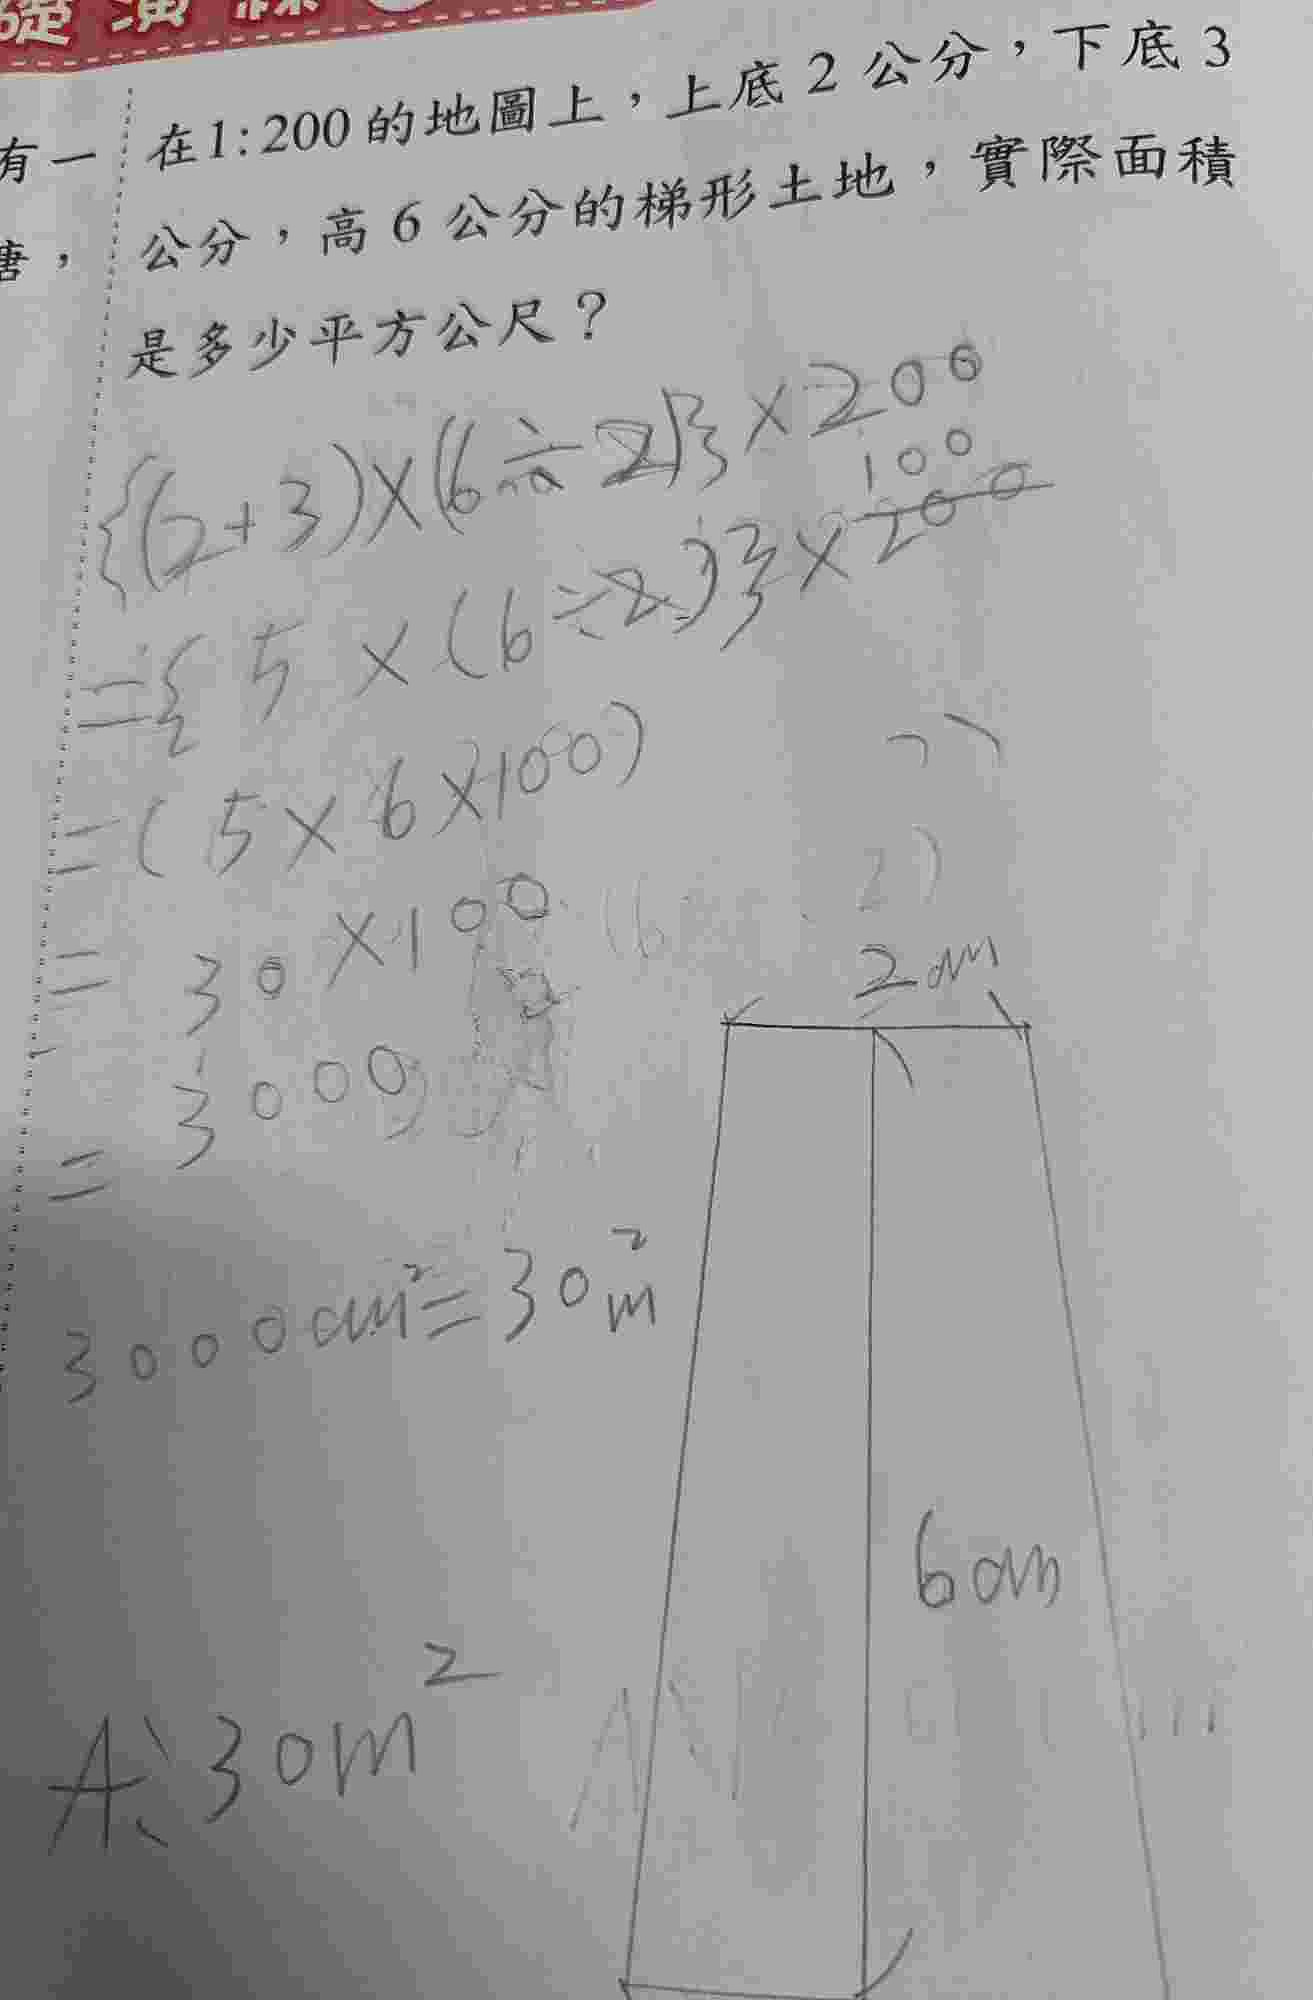 有一
糖，
在1:200的地圖上，上底2公分，下底3
公分，高6公分的梯形土地，實際面積
是多少平方公尺？
{(2+3)×(6÷2)}×200
100
={5×(6÷2)}×200
=(5×6×100)
=30×100
=3000
3000cm²=30m²
A、30m²
2cm
6cm